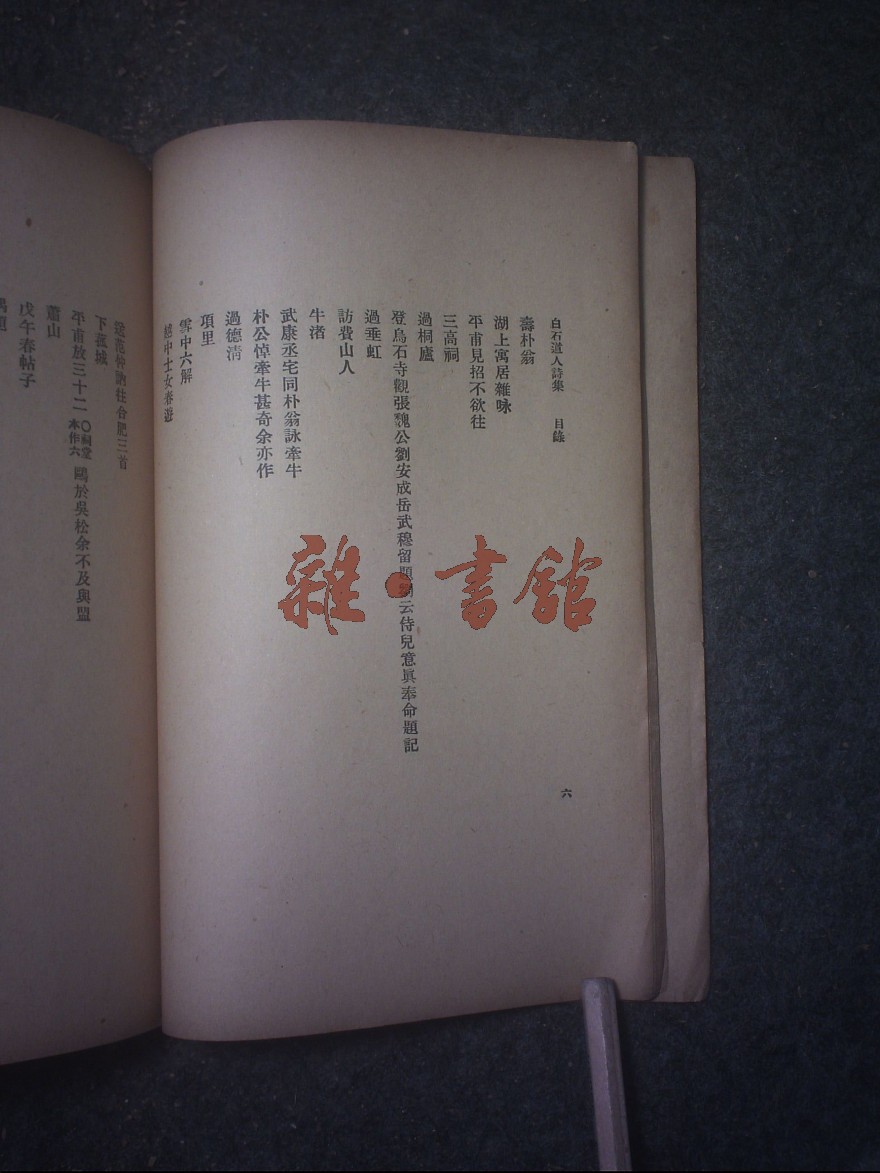 白石道人詩集　目錄
壽朴翁
湖上寓居雜咏
平甫見招不欲往
三高祠
過桐廬
登烏石寺觀張魏公劉安成岳武穆留題劉云侍兒意眞奉命題記
過垂虹
訪費山人
牛渚
武康丞宅同朴翁詠牽牛
朴公悼牽牛甚奇余亦作
過德清
項里
雪中六解
越中士女春遊
六
送范仲訥往合肥三首
下菰城
平甫放三十二〇祠堂本作六鷗於吳松余不及與盟
蕭山
戊午春帖子
雜·書館